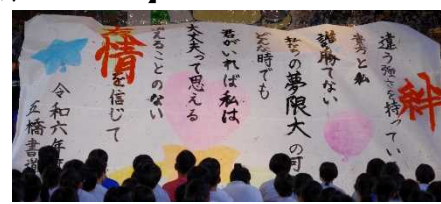 絆
違う強さを持ってい
と私
勝てない
私たちの夢限大の可
どんな時でも
君がいれば私は
大丈夫って思える
えることのない
情を信じて
令和六年
五橋書道